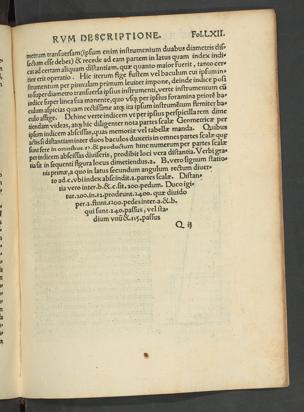 RVM DESCRIPTIONE. Fol.LXII.
metrum transuersam (ipsum enim instrumentum duabus diametris dis-
sectum esse debet) & recede ad eam partem in latus quam index indi-
cat ad certam aliquam distantiam, quæ quanto maior fuerit, tanto cer-
tior erit operatio. Hic iterum fige fustem vel baculum cui ipsum in-
strumentum per pinnulam primum leuiter impone, deinde indice posi
to super diametro transuersa ipsius instrumenti, verte instrumentum cũ
indice super linea sua manente, quo vsq; per ipsius foramina priorē ba-
culum aspicias quam rectissime atq; ita ipsum instrumētum firmiter ba-
culo affige. Dehinc verte indicem vt per ipsius perspicilla rem dime
tiendam videas, atq; hic diligenter nota partes scalæ Geometricæ per
ipsum indicem abscissas, quas memoriæ vel tabellæ manda. Quibus
actis si distantiam inter duos baculos duxeris in omnes partes scalæ quæ
sunt
fere in omnibus 12. & productum hinc numerum per partes scalæ
per indicem abscissas diuiseris, prodibit loci vera distantia. Verbi gra-
tia sit in sequenti figura locus dimetiendus .a. B, vero signum statio-
nis primæ, a quo in latus secundum angulum rectum diuer-
to ad .c. vbi index abscindit .2. partes scalæ. Distan-
tia vero inter .b. & .c. sit .200. pedum. Duco igi
tur .200. in .12. prodeunt .2400. quæ diuido
per .2. sunt .1200. pedes inter .a. & .b.
qui sunt .240. passus, vel sta-
dium vnū & .115. passus
Q ij